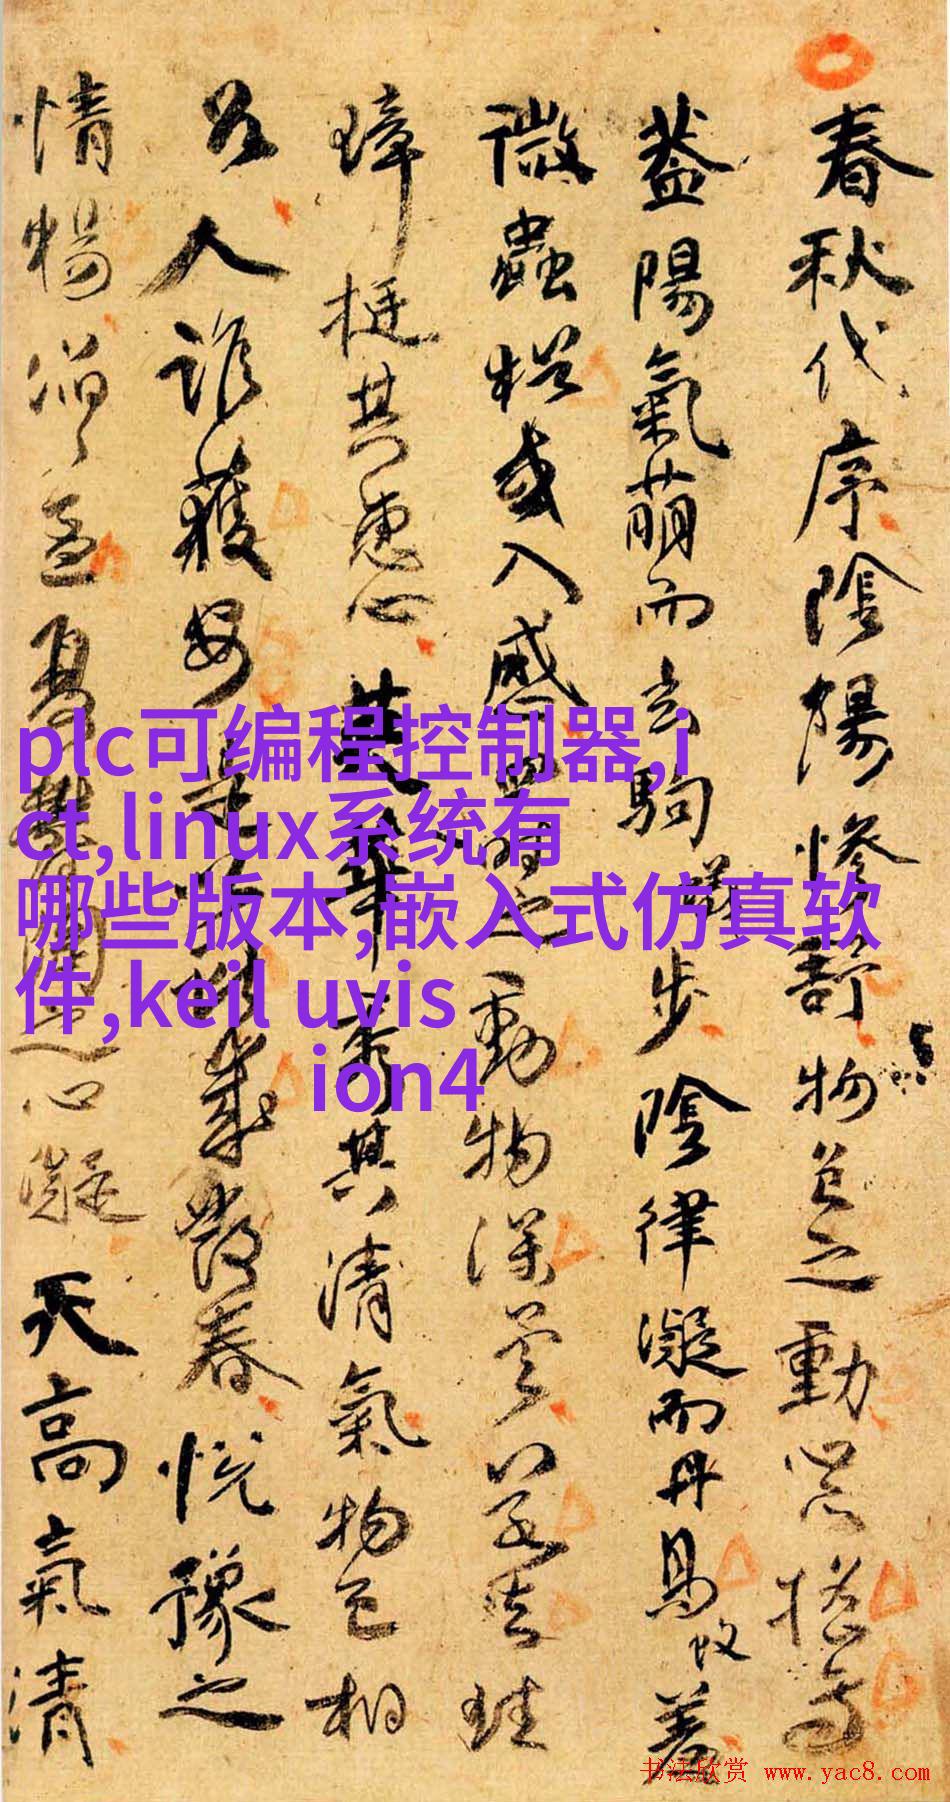 春秋代序陰陽慘舒物色之動心亦搖焉
蓋陽氣萌而玄駒蟻步陰律凝而丹鳥蚊羞
微蟲猶或入感四時之動物深矣若夫珪
璋挺其惠心英華秀其清氣物色相
召人誰獲安是以獻歲發春悅豫之
情暢滔〻孟夏鬱陶之心凝天高氣清
plc可编程控制器,i
ct,linux系统有
哪些版本,嵌入式仿真软
件,keil uvis
ion4
书法欣赏 www.yac8.com